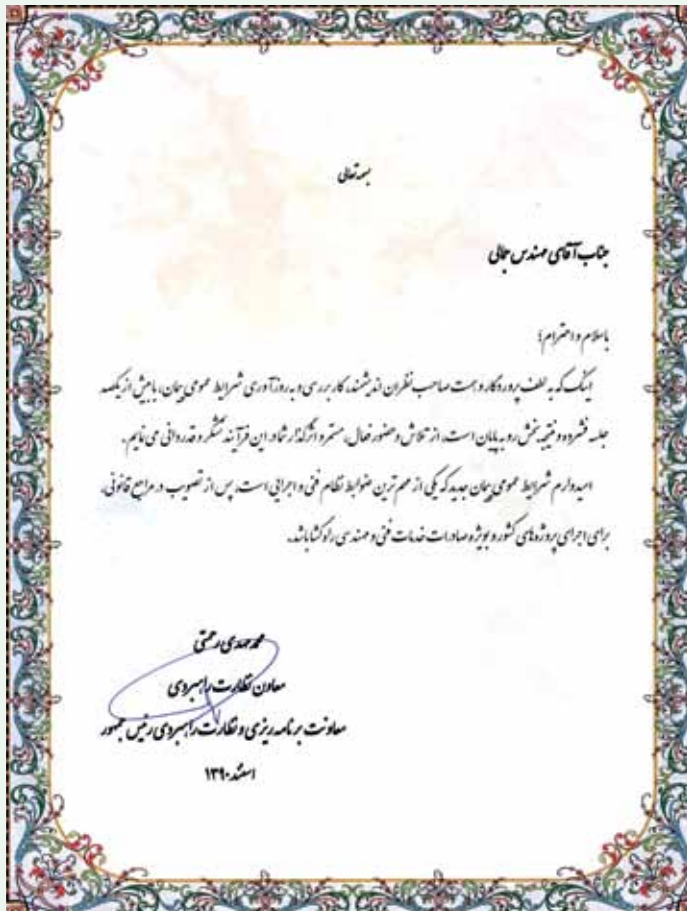 بسمه تعالی
جناب آقای مهندس جمالی
با سلام و احترام؛
اینک که به لطف پروردگار و همت صاحب نظران اندیشمند، کار بررسی و به روزآوری شرایط عمومی پیمان، با بیش از یکصد
جلسه فشرده و نتیجه بخش رو به پایان است، از تلاش و حضور فعال، مستمر و اثرگذار شما در این فرآیند تشکر و قدردانی می نمایم.
امیدوارم شرایط عمومی پیمان جدید که یکی از مهم ترین ضوابط نظام فنی و اجرایی است، پس از تصویب در مراجع قانونی،
برای اجرای پروژه های کشور و بویژه صادرات خدمات فنی و مهندسی راه گشا باشد.
محمد مهدی رحمتی
معاون نظارت راهبردی
معاونت برنامه ریزی و نظارت راهبردی رئیس جمهور
اسفند ۱۳۹۰